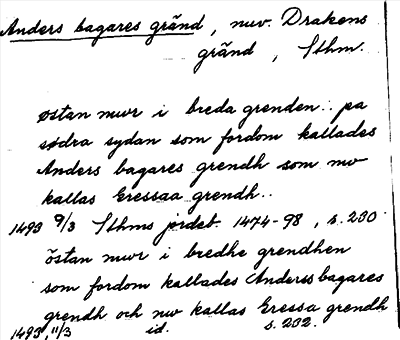 Anders bagares gränd, nuv. Drakens
gränd, Sthm.
østan mwr i breda grenden.. pa
sødra sydan som fordom kallades
Anders bagares grendh som nw
kallas Eressaa grendh..
1493 9/3 Sthms jordeb. 1474-98, s. 230.
östan mwr i bredhe grendhen
som fordom kallades Anderss bagares
grendh och nw kallas Eressa grendh
1493, 11/3 id. s. 232.